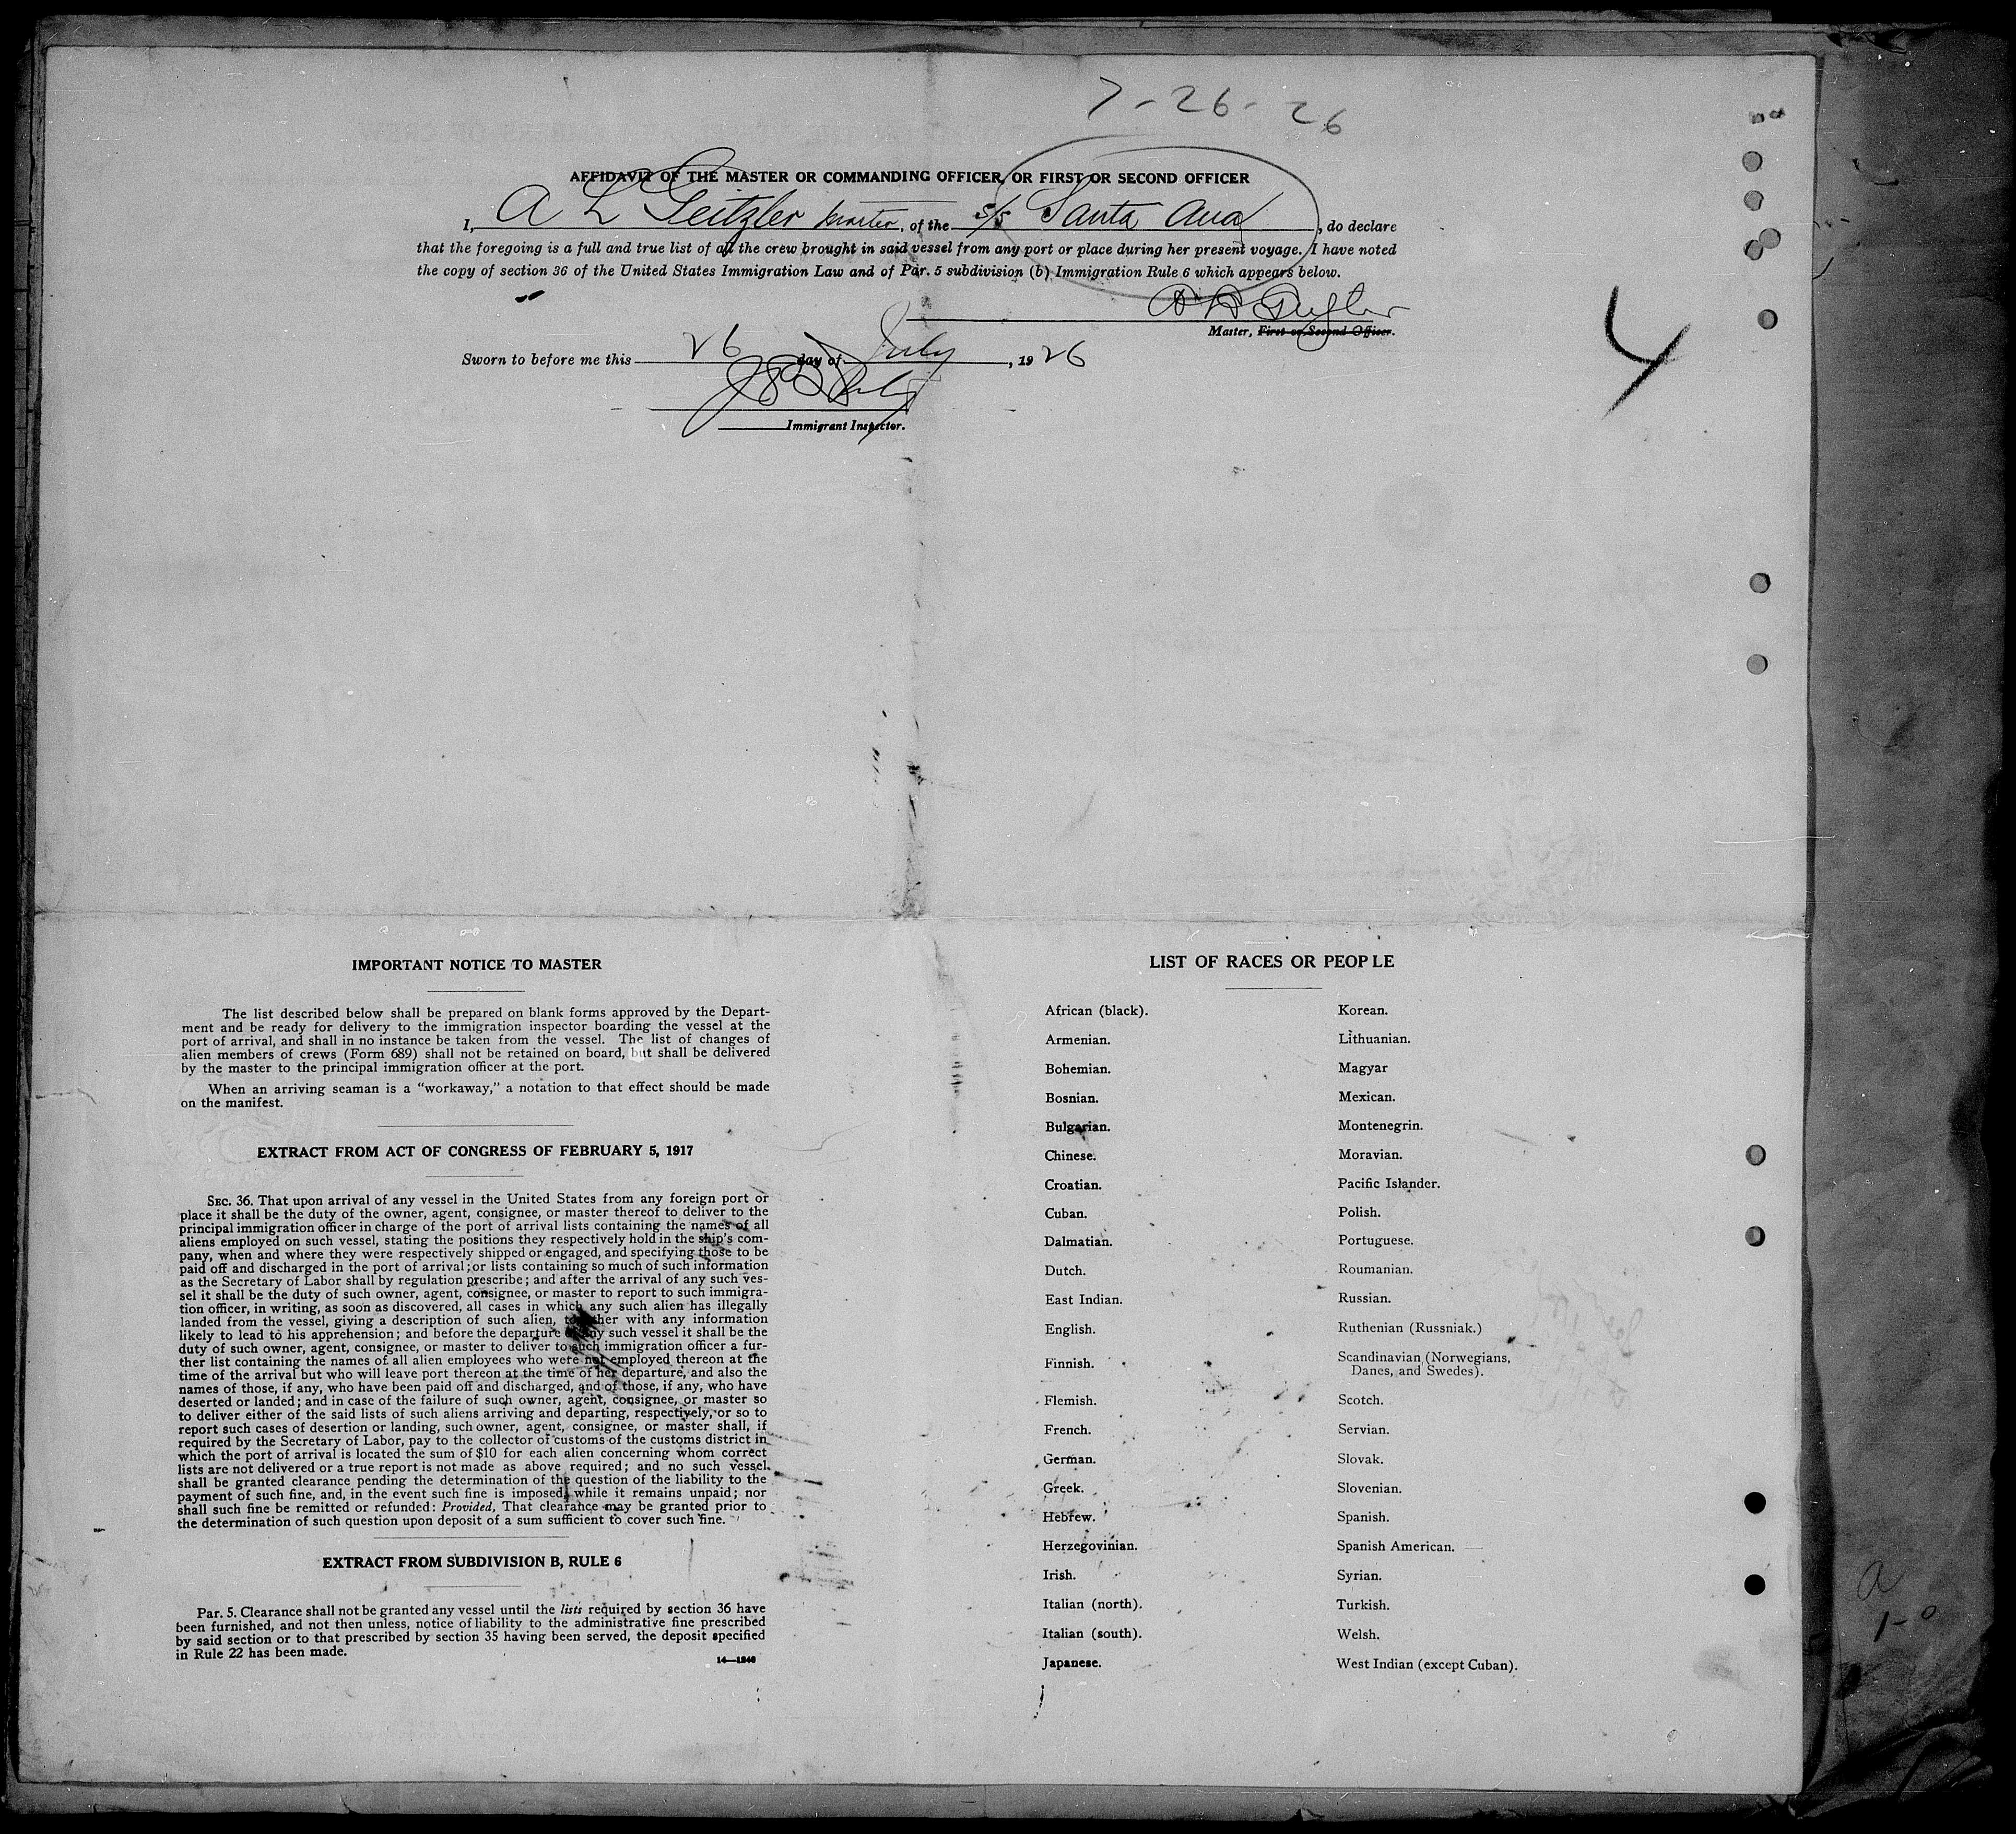 7-26-26
AFFIDAVIT OF THE MASTER OR COMMANDING OFFICER, OR FIRST OR SECOND OFFICER
I, A L Geitzler Master, of the S/S Santa Ana, do declare
that the foregoing is a full and true list of all the crew brought in said vessel from any port or place during her present voyage. I have noted
the copy of section 36 of the United States Immigration Law and of Par. 5 subdivision (b) Immigration Rule 6 which appears below.
4
Master, First or Second Officer.
Sworn to before me this 26 day of July, 1926
Immigrant Inspector.
IMPORTANT NOTICE TO MASTER
The list described below shall be prepared on blank forms approved by the Depart-
ment and be ready for delivery to the immigration inspector boarding the vessel at the
port of arrival, and shall in no instance be taken from the vessel. The list of changes of
alien members of crews (Form 689) shall not be retained on board, but shall be delivered
by the master to the principal immigration officer at the port.
When an arriving seaman is a “workaway,” a notation to that effect should be made
on the manifest.
EXTRACT FROM ACT OF CONGRESS OF FEBRUARY 5, 1917
SEC. 36. That upon arrival of any vessel in the United States from any foreign port or
place it shall be the duty of the owner, agent, consignee, or master thereof to deliver to the
principal immigration officer in charge of the port of arrival lists containing the names of all
aliens employed on such vessel, stating the positions they respectively hold in the ship's com-
pany, when and where they were respectively shipped or engaged, and specifying those to be
paid off and discharged in the port of arrival; or lists containing so much of such information
as the Secretary of Labor shall by regulation prescribe; and after the arrival of any such ves-
sel it shall be the duty of such owner, agent, consignee, or master to report to such immigra-
tion officer, in writing, as soon as discovered, all cases in which any such alien has illegally
landed from the vessel, giving a description of such alien, together with any information
likely to lead to his apprehension; and before the departure of any such vessel it shall be the
duty of such owner, agent, consignee, or master to deliver to such immigration officer a fur-
ther list containing the names of all alien employees who were not employed thereon at the
time of the arrival but who will leave port thereon at the time of her departure, and also the
names of those, if any, who have been paid off and discharged, and of those, if any, who have
deserted or landed; and in case of the failure of such owner, agent, consignee, or master so
to deliver either of the said lists of such aliens arriving and departing, respectively, or so to
report such cases of desertion or landing, such owner, agent, consignee, or master shall, if
required by the Secretary of Labor, pay to the collector of customs of the customs district in
which the port of arrival is located the sum of $10 for each alien concerning whom correct
lists are not delivered or a true report is not made as above required; and no such vessel
shall be granted clearance pending the determination of the question of the liability to the
payment of such fine, and, in the event such fine is imposed, while it remains unpaid; nor
shall such fine be remitted or refunded: Provided, That clearance may be granted prior to
the determination of such question upon deposit of a sum sufficient to cover such fine.
EXTRACT FROM SUBDIVISION B, RULE 6
Par. 5. Clearance shall not be granted any vessel until the lists required by section 36 have
been furnished, and not then unless, notice of liability to the administrative fine prescribed
by said section or to that prescribed by section 35 having been served, the deposit specified
in Rule 22 has been made.
14—1240
LIST OF RACES OR PEOPLE
African (black).
Armenian.
Bohemian.
Bosnian.
Bulgarian.
Chinese.
Croatian.
Cuban.
Dalmatian.
Dutch.
East Indian.
English.
Finnish.
Flemish.
French.
German.
Greek.
Hebrew.
Herzegovinian.
Irish.
Italian (north).
Italian (south).
Japanese.
Korean.
Lithuanian.
Magyar
Mexican.
Montenegrin.
Moravian.
Pacific Islander.
Polish.
Portuguese.
Roumanian.
Russian.
Ruthenian (Russniak.)
Scandinavian (Norwegians,
Danes, and Swedes).
Scotch.
Servian.
Slovak.
Slovenian.
Spanish.
Spanish American.
Syrian.
Turkish.
Welsh.
West Indian (except Cuban).